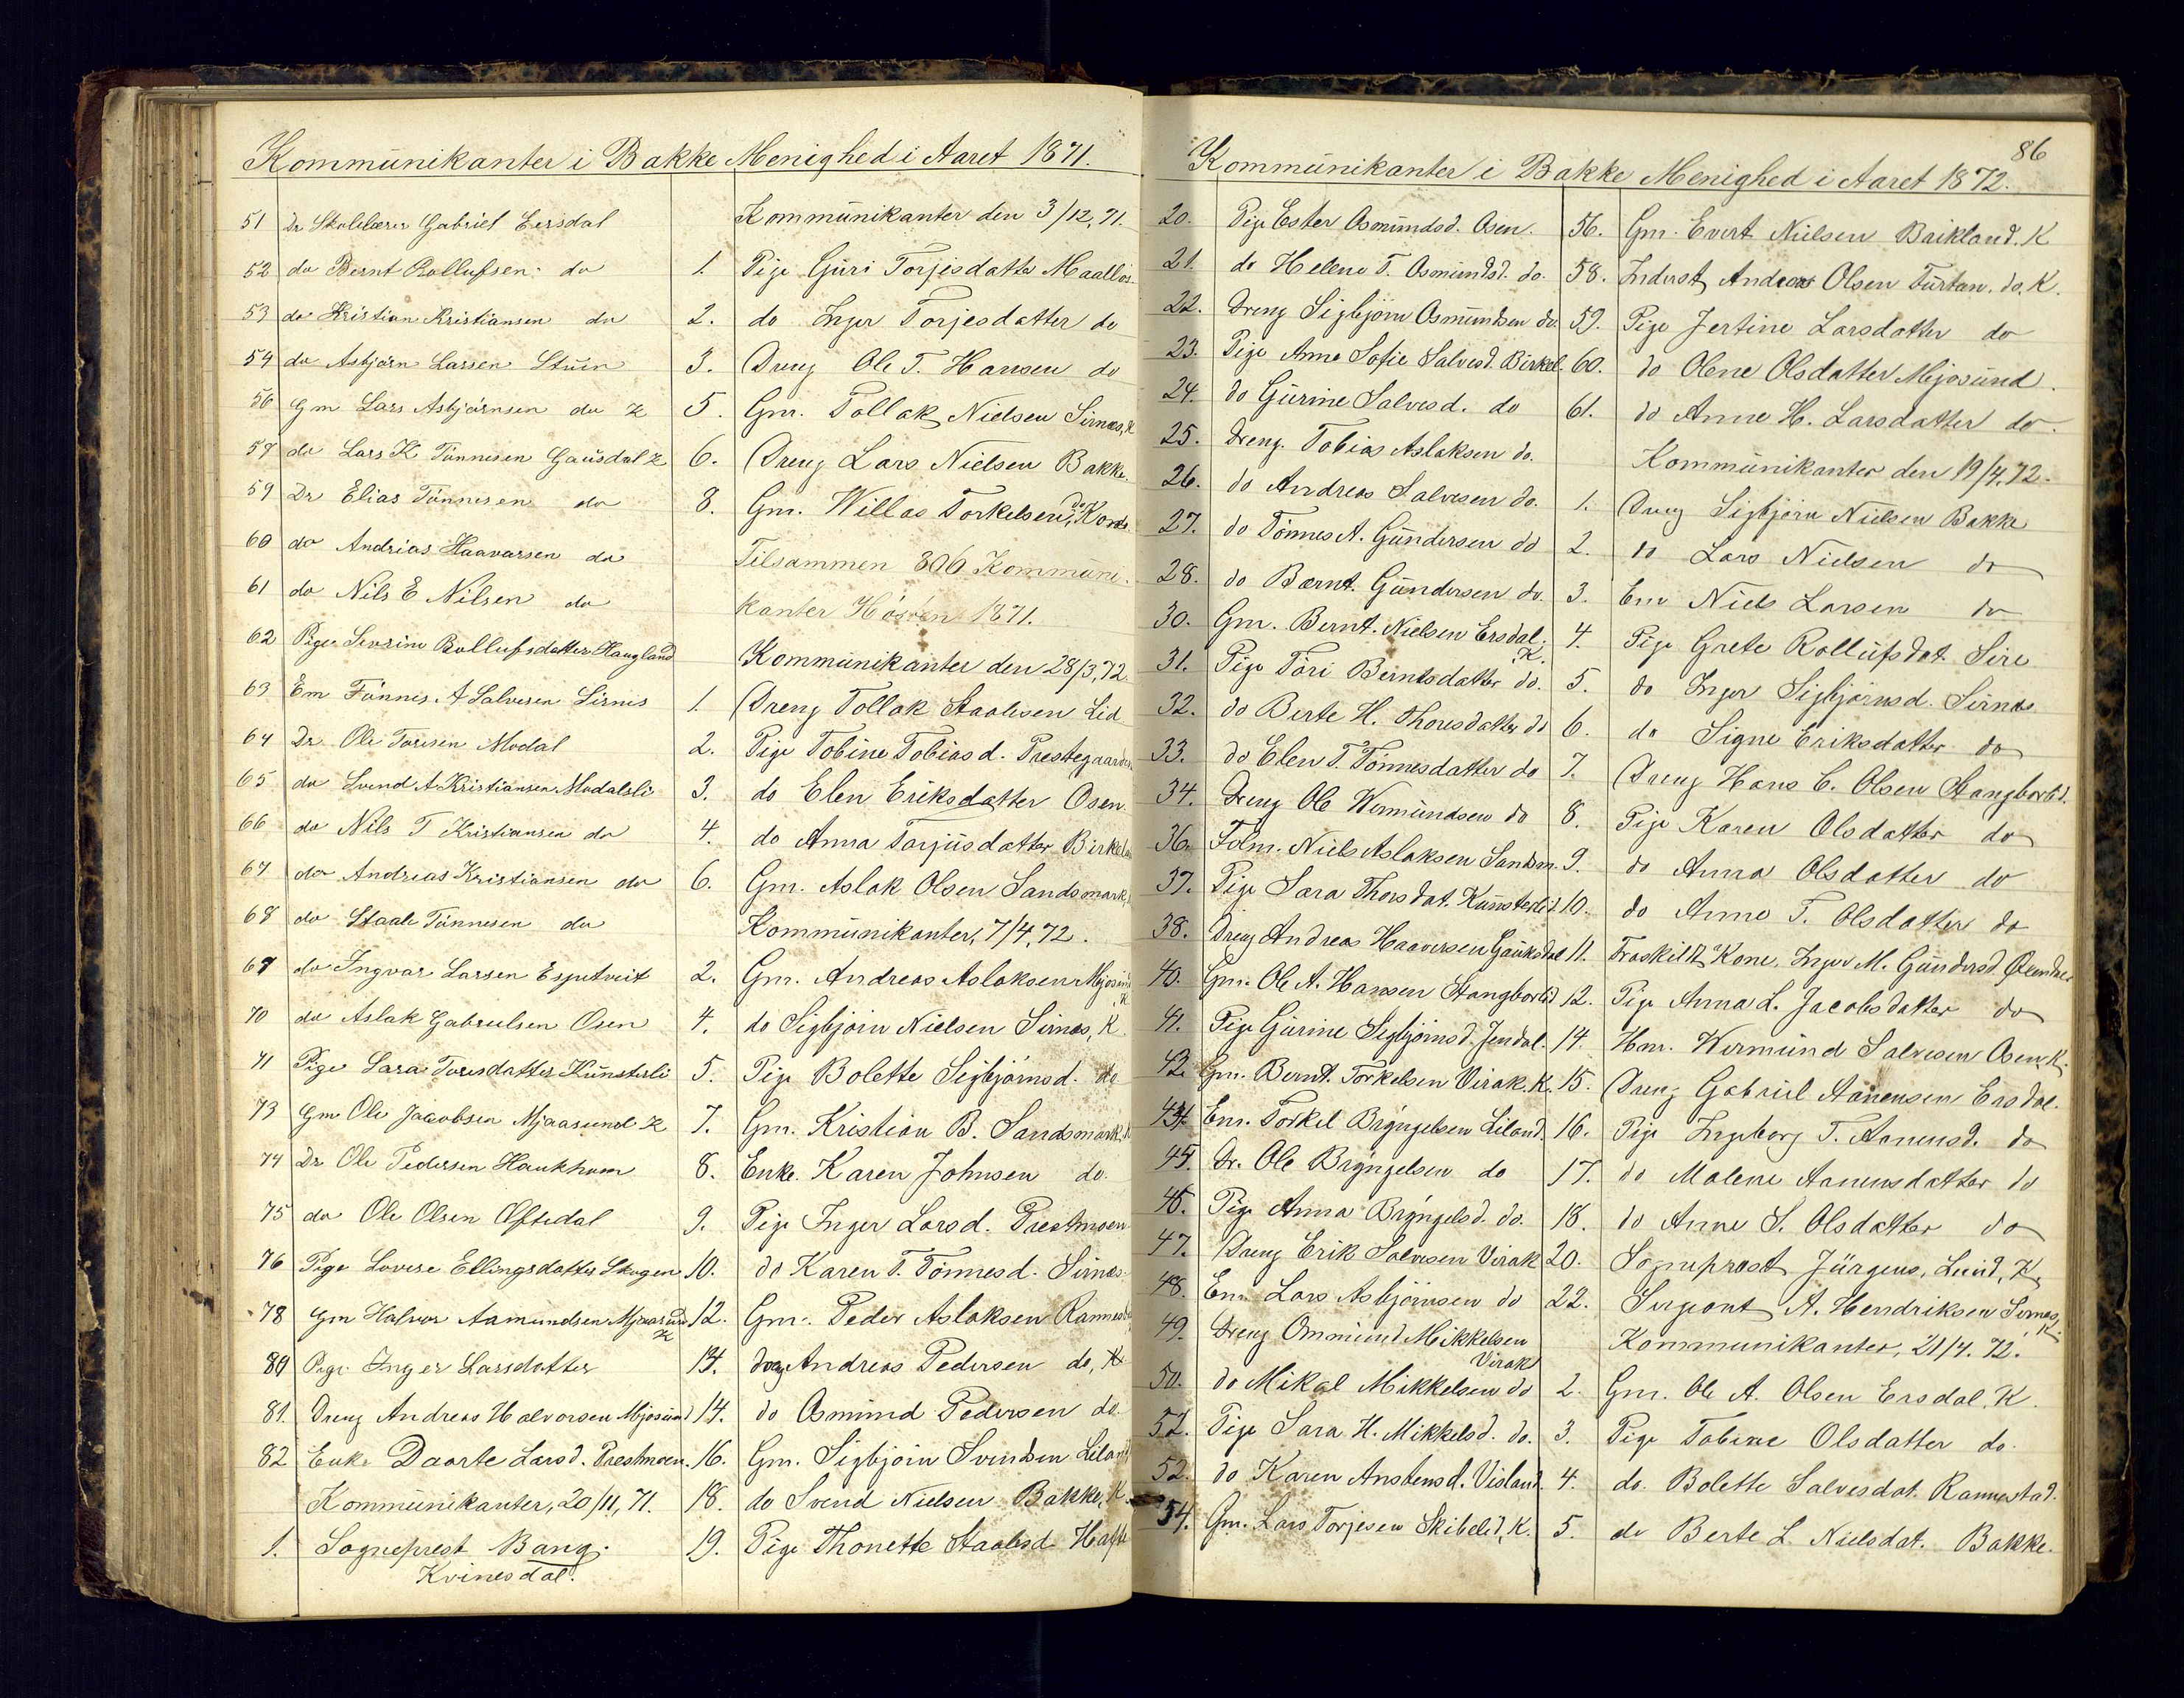 Kommünikanter i Bakke Menighed i Aaret 1871.
51 Dr Skolelærer Gabriel Eersdal
52 do Bernt Rollufsen do
53 do Kristian Kristiansen do
54 do Asbjørn Larsen Stuen
56 Gm Lars Asbjørnsen do K
57 do Lars K Tönnesen Gausdal K
59 Dr Elias Tönnesen do
60 do Andrias Haavarsen do
61 do Nils E Nilsen do
62 Pige Sevrine Rollufsdatter Haugland
63 Em Tönnes A Salvesen Sirnes
64 Dr Ole Toresen Modal
65 do Svend A Kristiansen Modalsli
66 do Nils T Kristiansen do
67 do Andrias Kristiansen do
68 do Staale Tönnesen do
69 do Ingvar Larsen Espetveit
70 do Aslak Gabrielsen Osen
71 Pige Sara Toresdatter Künsterli
73 Gm Ole Jacobsen Mjaasund K
74 Dr Ole Pedersen Haukhom
75 do Ole Olsen Øftedal
76 Pige Lovise Ellingsdatter Skogen
78 Gm Halvor Aamundsen Mjaasund K
80 Pige Inger Larsdatter
81. Dreng Andreas Halvorsen Mjosünd
82 Enke Daarte Larsd. Prestmoen.
Kommünikanter, 20/11, 71.
1. Sogneprest Bang.
Kvinesdal.
Kommünikanter den 3/12, 71.
1. Pige Güri Torjesdatter Maallös.
2. do Inger Torjesdatter do
3. Dreng Ole T. Hansen do
5. Gm. Tollak Nielsen Sirnæs, K
6. Dreng Lars Nielsen Bakke.
8. Gm. Willas Torkelsen, do Kone
Tilsammen 306 Kommüni-
kanter Høsten 1871.
Kommünikanter den 28/3, 72.
1. Dreng Tollak Staalesen Lid
2. Pige Tobine Tobiasd. Prestegaarden
3. do Elen Eriksdatter Osen.
4. do Anna Torjüsdatter Birkeland
6. Gm. Aslak Olsen Sandsmark,
Kommünikanter, 7/4, 72.
2. Gm. Andreas Aslaksen Mjosünd K
4. do Sigbjörn Nielsen Sirnæs, K
5. Pige Bolette Sigbjörnsd. do
7. Gm. Kristian B. Sandsmark, K
8. Enke Karen Johnsen do.
9. Pige Inger Larsd. Prestmoen
10. do Karen T. Tönnesd. Sirnæs.
12. Gm. Peder Aslaksen Rannestad
13. Dreng Andreas Pedersen do, K
14. do Osmünd Pedersen do.
16. Gm. Sigbjörn Svendsen Liland
18. do Svend Nielsen Bakke, K.
19. Pige Thonette Staalesd.
86
Kommünikanter i Bakke Menighed i Aaret 1872.
20. Pige Ester Osmündsd. Osen.
21. do Helene T. Osmündsd. do.
22. Dreng Sigbjörn Osmündsen do.
23. Pige Anne Sofie Salvesd. Birkel.
24. do Gürine Salvesd. do
25. Dreng Tobias Aslaksen do.
26. do Andreas Salvesen do.
27. do Tönnes A. Gündersen do
28. do Bærnt. Gündersen do.
30. Gm. Bernt. Nielsen Ersdal. K.
31. Pige Töri Berntsdatter do.
32. do Berte H. Thoresdatter do
33. do Elen T. Tönnesdatter do
34. Dreng Ole Wermündsen do
36. Folm. Niels Aslaksen Sandsm.
37. Pige Sara Thorsdat. Künsterlid
38. Dreng Andreas Haaversen Gauksdal
40. Gm. Ole A. Hansen Stangborlid
41. Pige Gürine Sigbjörnsd. Jendal.
42. Gm. Bernt. Torkelsen Virak. K.
44. Em. Torkel Bryngelsen Liland.
45. Dr. Ole Bryngelsen do
46. Pige Anna Bryngelsd. do.
47. Dreng Erik Salvesen Virak
48. Em. Lars Asbjörnsen do
49. Dreng Ommünd Mikkelsen Virak
50. do Mikal Mikkelsen do
51. Pige Sara H. Mikkelsd. do.
52. do Karen Anstensd. Visland.
54. Gm. Lars Torjesen Skibelid, K.
56. Gm. Evert Nielsen Brikland. K
58. Inderst Andreas Olsen Türtan. do. K.
59. Pige Jertine Larsdatter do
60. do Olene Olsdatter Mjosünd.
61. do Anne H. Larsdatter do.
Kommünikanter den 19/4, 72.
1. Dreng Sigbjörn Nielsen Bakke
2. do Lars Nielsen do
3. Em Niels Larsen do
4. Pige Grete Rollüfsdat. Sire
5. do Inger Sigbjörnsd. Sirnæs
6. do Signe Eriksdatter do
7. Dreng Hans C. Olsen Stangborlid.
8. Pige Karen Olsdatter do
9. do Anna Olsdatter do
10. do Anne T. Olsdatter do
11. Fraskilt Kone, Inger M. Gündersd.
12. Pige Anna L. Jacobsdatter do
14. Hm. Wermünd Salvesen Osen. K.
15. Dreng Gabriel Aanensen Ersdal.
16. Pige Ingeborg T. Aanensd. do
17. do Malene Aanensdatter do
18. do Anne S. Olsdatter do
20. Sogneprest Jürgens, Lund, K
22. Sergeant A. Hendriksen Sirnæs, K.
Kommunikanter, 21/4. 72.
2. Gm. Ole A. Olsen Ersdal. K.
3. Pige Tobine Olsdatter do.
4. do. Bolette Salvesdat. Rannestad.
5. do Berte L. Nielsdat. Bakke.